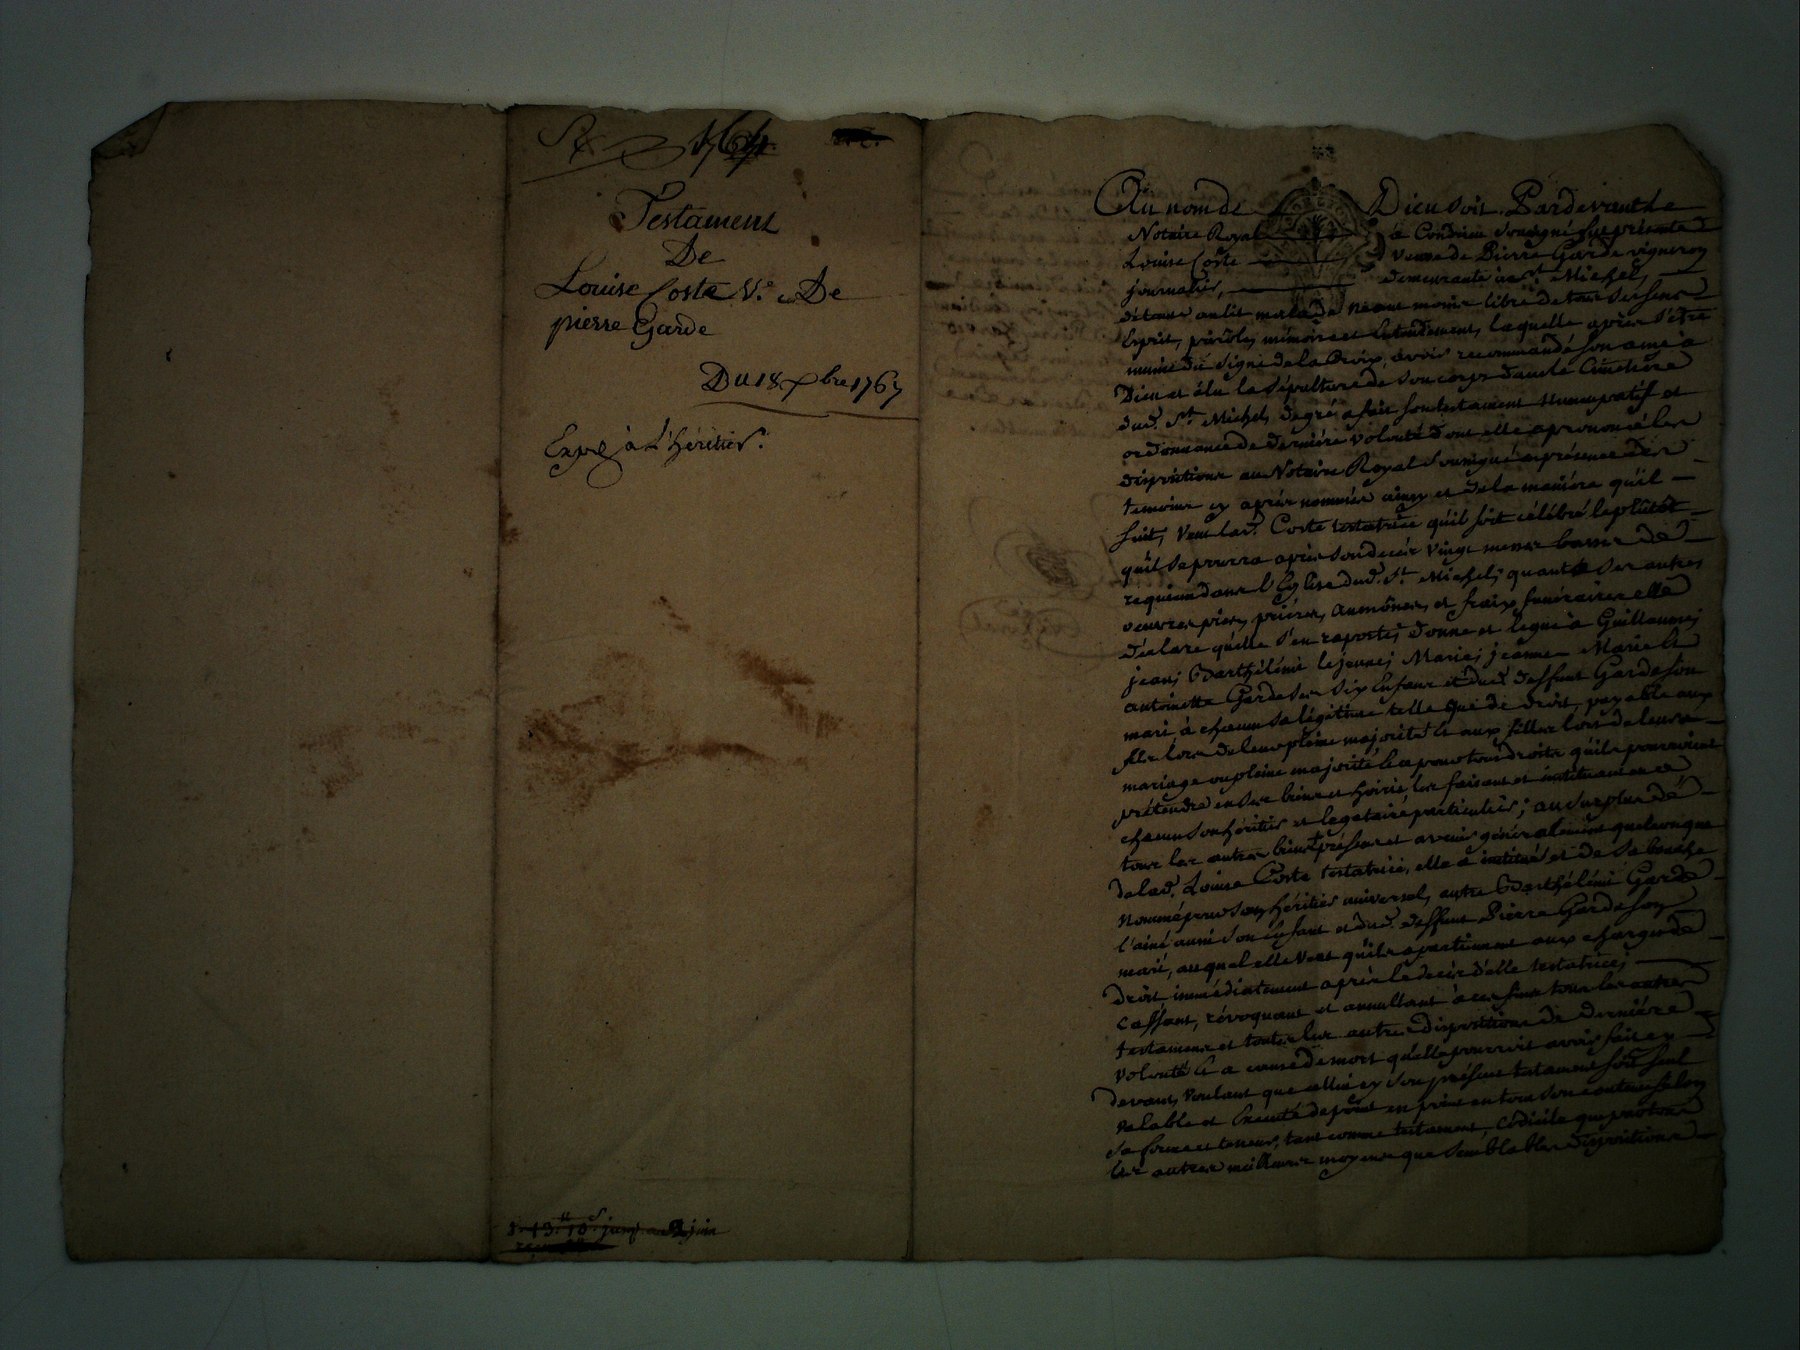 1764.
Testament
De
Louise Coste V.e De
pierre Garde
Du 18 xbre 1767
Exp.é à L'héritier.
Au nom de Dieu soit. Pardevant Le
Notaire Royal à Condrieu soussigné fut présente
Louise Coste Veuve de Pierre Garde vigneron
journalier, demeurante à St. Michel,
détenue au lit malade néant moins libre de tous ses sens
Esprit, parole, mémoire et Entendement, laquelle après s'être
munie du signe de la Croix, avoir recommandé son ame à
Dieu et élu la sépulture de son corps dans le Cimetière
dud. St. Michel, de gré a fait son testament nuncupatif et
ordonnance de dernière volonté dont elle a prononcé les
dispositions au Notaire Royal soussigné en présence des
temoins cy après nommés ainsy et de la manière qu'il
suit, Veut lad. Coste testatrice qu'il soit célébré le plûtôt
qu'il se pourra après son decès vingt messes basses de
requiem dans l'Eglise dud. St. Michel; quant à ses autres
oeuvres pies, prières, aumônes, et fraix funéraires elle
déclare qu'elle s'en raporte; donne et legue à Guillaume;
jean; Barthélémi le jeune; Marie; jeanne Marie et
antoinette Garde ses six Enfans et dud. deffunt Garde son
mari à chacun sa légitime telle que de droit, payable aux
fils lors de leur pleine majorité et aux filles lors de leurs
mariage ou pleine majorité et ce pour tous droits qu'ils pourroient
prétendre en ses biens et hoirie, les faisant et instituant en ce
chacun son héritier et legataire particulier; au surplus de
tous les autres biens présens et avenir généralement quelconques
de lad. Louise Coste testatrice, elle a institué et de sa bouche
nommé pour son héritier universel, autre Barthélémi Garde
l'ainé aussi son Enfant et dud. deffunt Pierre Garde son
mari, auquel elle veut qu'ils apartiennent aux charges de
droit immédiatement après le decès d'elle testatrice;
cassant, révoquant et annullant à ces fins tous les autres
testamens et toutes les autres dispositions de dernière
volonté et a cause de mort qu'elle pourroit avoir fait cy
devant, voulant que celui cy son présent testament soit seul
valable et Exécuté de point en point en tout son contenu selon
sa forme et teneur, tant comme testament, codicile que par tous
les autres meilleurs moyens que semblables dispositions